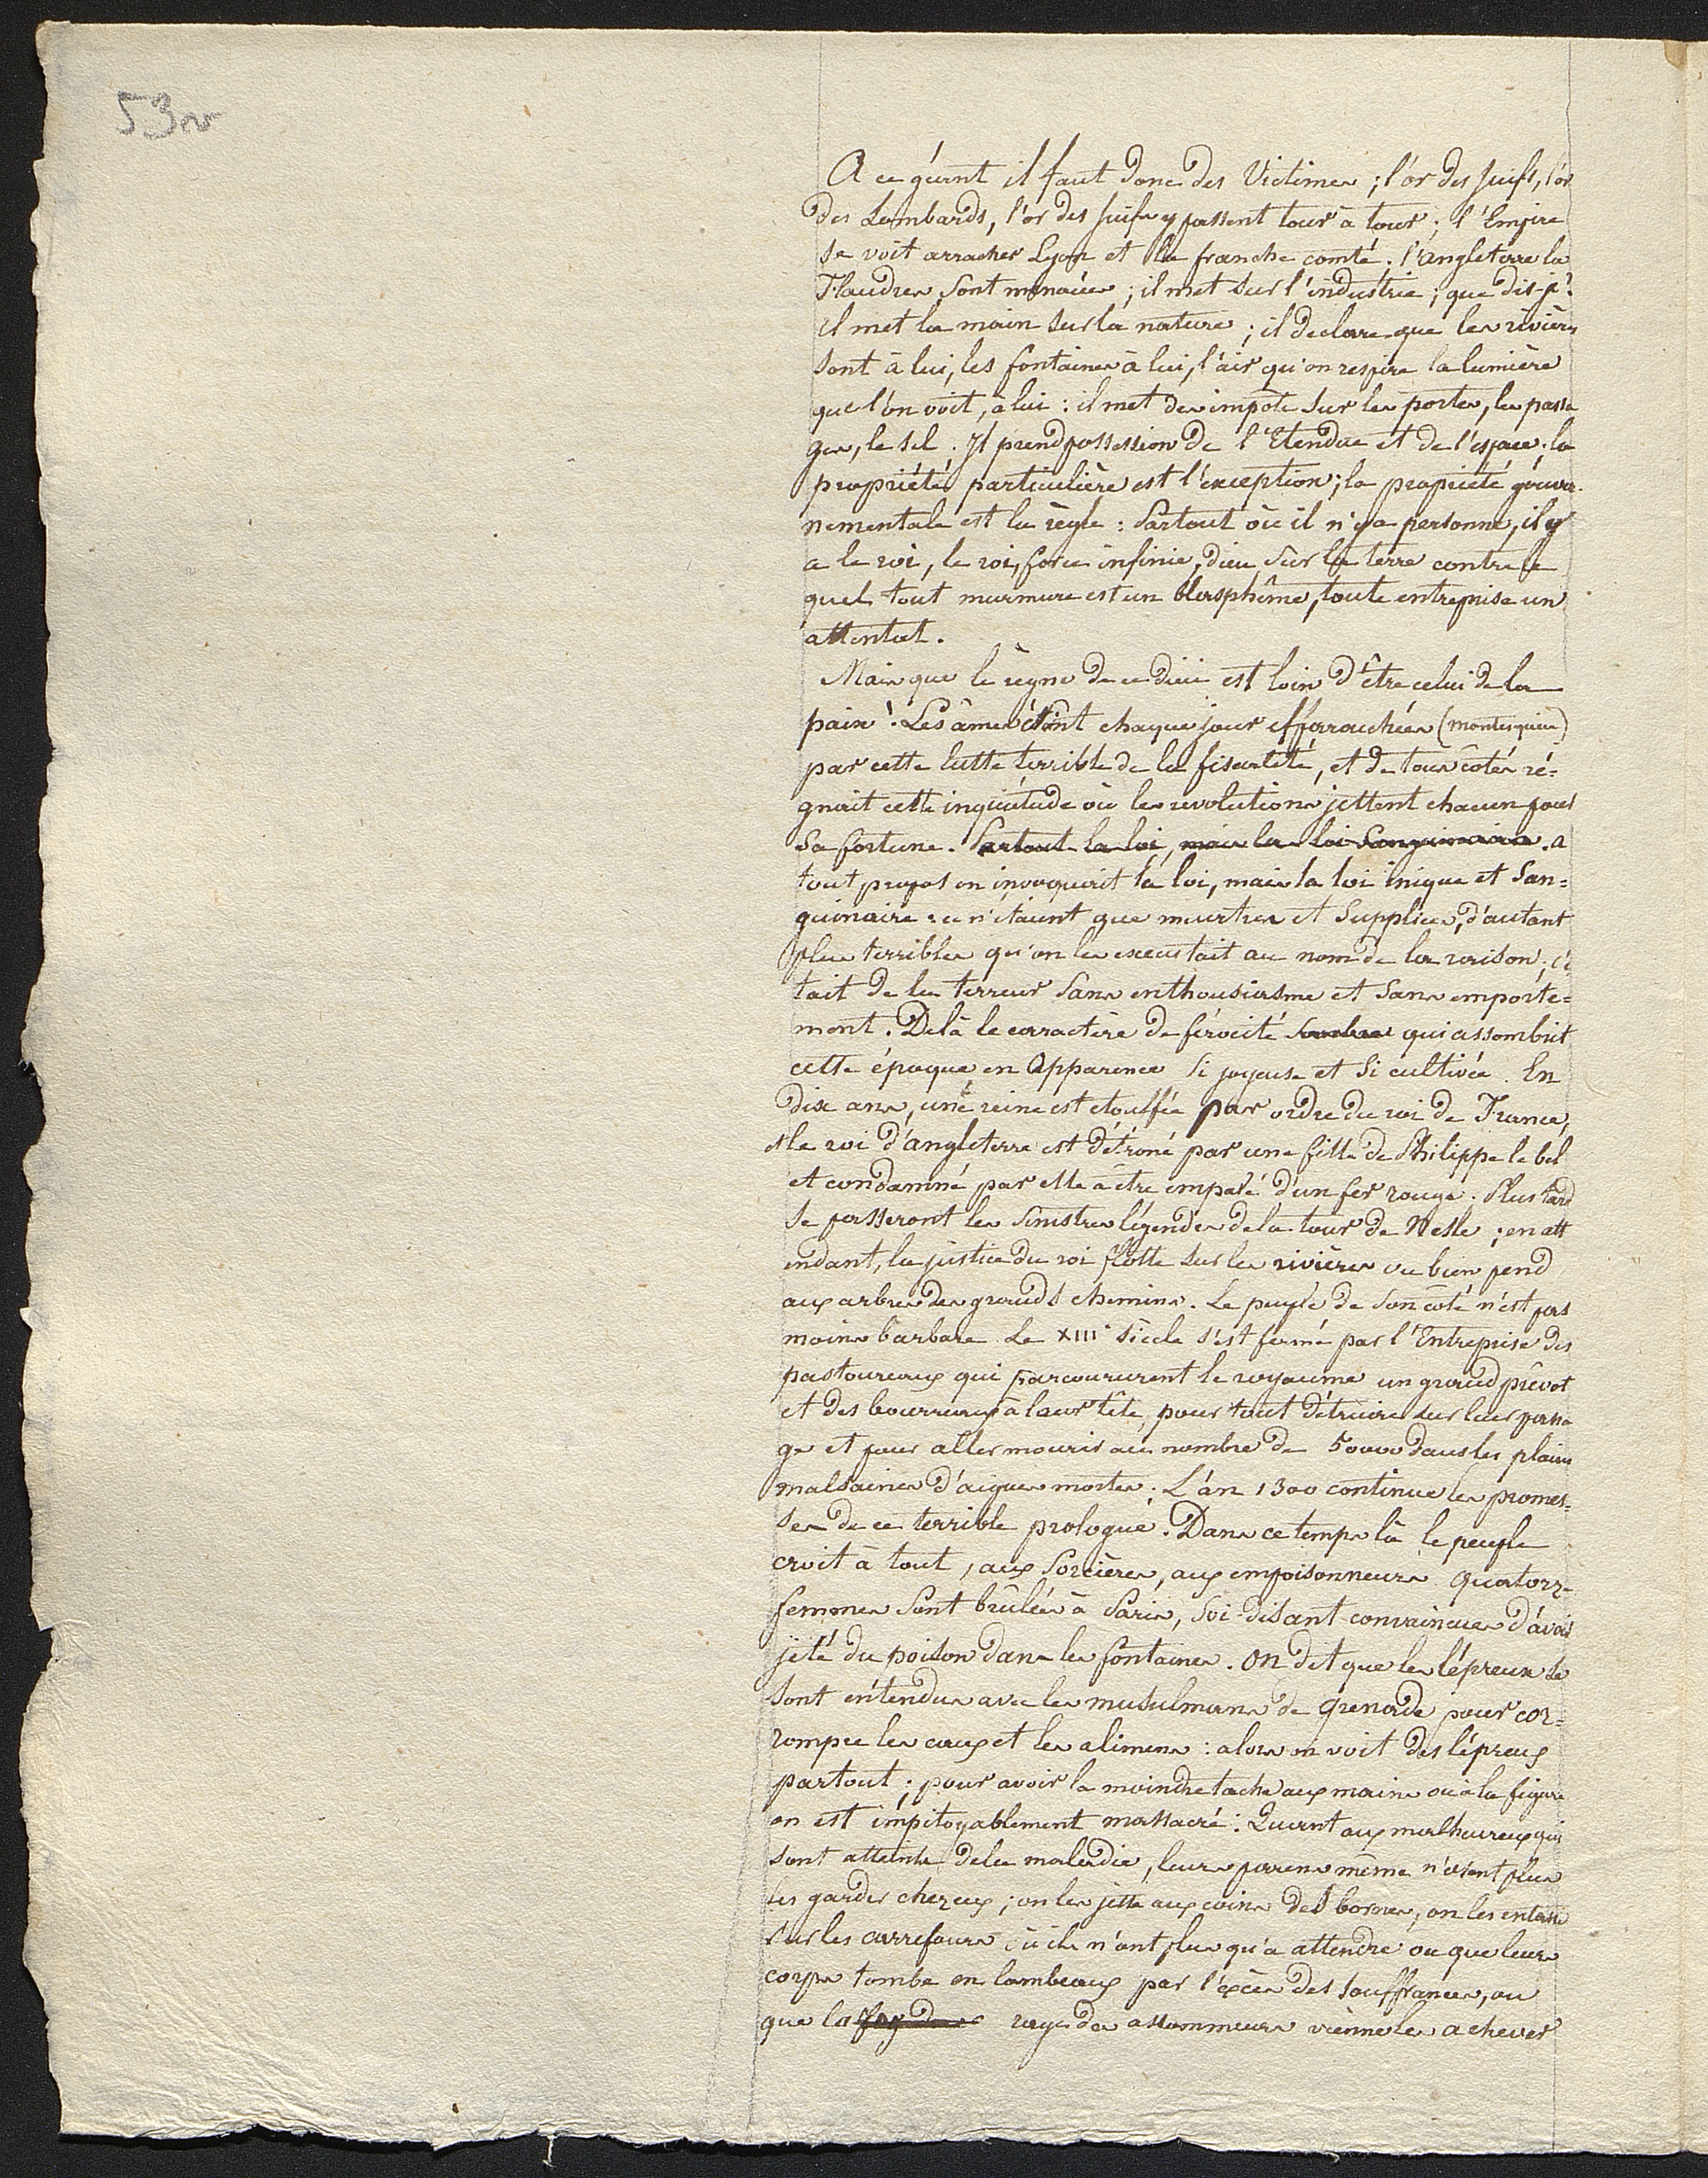 53 v
A ce géant il faut donc des Victimes ; l'or des juifs, l'or
des Lombards, l'or des juifs y passent tour à tour ; l'Empire
se voit arracher Lyon et la franche comté. l'angleterre la
Flandres sont menacées ; il met sur l'industrie ; que dis-je ?
il met la main sur la nature ; il declare que les rivières
sont à lui, les fontaines à lui, l'air qu'on respire la lumière
que l'on voit, à lui : il met des impots sur les portes, les passa
ges, le sel. Il prend possession de l'Etendue et de l'espace. la
propriété particulière est l'exception ; la propriété gouver-
nementale est la règle : Partout où il n'y a personne, il y
a le roi, le roi, force infinie, dieu sur la terre contre le
quel tout murmure est un blasphême, toute entreprise un
attentat.
Mais que le règne de ce dieu est loin d'être celui de la
paix ! Les âmes étoint chaque jour effarouchées (montesquieu)
par cette lutte terrible de la fiscalité, et de tous cotés ré=
gnait cette inquiétude où les revolutions jettent chacun pour
sa fortune. Partout la loi, mais la loi Sanguinaire. a
tout propos on invoquait la loi, mais la loi inique et San=
guinaire : ce n'étaient que meurtres et Supplices, d'autant
plus terribles qu'on les executait au nom de la raison ; c'é
tait de la terreur Sans enthousiasme et Sans emporte=
ment. Delà le caractère de férocité sombre qui assombrit
cette époque en Apparence Si joyeuse et Si cultivée. En
dix ans, une reine est etouffée par ordre du roi de France,
et le roi d'angleterre est détroné par une fille de Philippe le bel
et condamné par elle à être empalé d'un fer rouge. Plus tard
se passeront les Sinistres légendes de la tour de Nesle ; en att
endant, la justice du roi flotte sur les rivières ou bien pend
aux arbres des grands chemins. Le peuple de son coté n'est pas
moins barbare. Le XIIIe siècle s'est fermé par l'Entreprise des
pastoureaux qui parcoururent le royaume un grand prévot
et des bourreaux à leur tête, pour tout détruire sur leur passa
ge et pour aller mourir au nombre de 50000 dans les plaines
malsaines d'aigues mortes. L'an 1300 continue les promes=
ses de ce terrible prologue. Dans ce temps là le peuple
croit à tout, aux Sorcières, aux empoisonneurs. Quatorze
femmes sont brûlées à Paris, Soi-disant convaincues d'avoir
jeté du poison dans les fontaines. On dit que les lépreux se
sont entendus avec les musulmans de Grenade pour cor=
rompre les eaux et les alimens : alors on voit des lépreux
partout ; pour avoir la moindre tache aux mains ou à la figure
on est impitoyablement massacré : Quant aux malheureux qui
sont atteints de la maladie, leurs parens même n'osent plus
les garder chez eux ; on les jette aux coins des bornes, on les entasse
sur les carrefours, où ils n'ont plus qu'à attendre ou que leurs
corps tombe en lambeaux par l'excès des souffrances, ou
que la rage des assommeurs vienne les achever